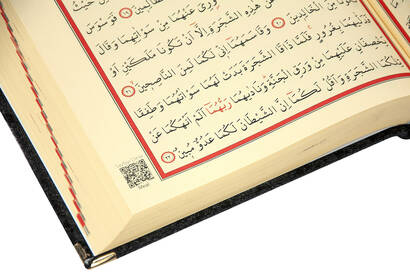 حَيْثُ
الظَّالِمِينَ ﴿١٩﴾ فَوَسْوَسَ
وُرِىَ عَنْهُمَا مِنْ سَوْاٰتِهِمَا وَقَالَ
هٰذِهِ الشَّجَرَةِ اِلَّٓا اَنْ تَكُونَا مَلَكَيْنِ اَوْ
مِنَ الْخَالِدٖينَ ﴿٢٠﴾ وَقَاسَمَهُمَٓا اِنّٖى لَكُمَا لَمِنَ النَّاصِحٖينَ ﴿٢١﴾
فَدَلّٰيهُمَا بِغُرُورٍ فَلَمَّا ذَاقَا الشَّجَرَةَ بَدَتْ لَهُمَا سَوْاٰتُهُمَا وَطَفِقَا
يَخْصِفَانِ عَلَيْهِمَا مِنْ وَرَقِ الْجَنَّةِ وَنَادٰيهُمَا رَبُّهُمَٓا اَلَمْ اَنْهَكُمَا عَنْ
تِلْكُمَا الشَّجَرَةِ وَاَقُلْ لَكُمَٓا اِنَّ الشَّيْطَانَ لَكُمَا عَدُوٌّ مُبٖينٌ ﴿٢٢﴾